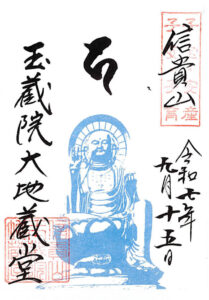 信貴山
令和七年
九月十五日
玉蔵院大地蔵堂